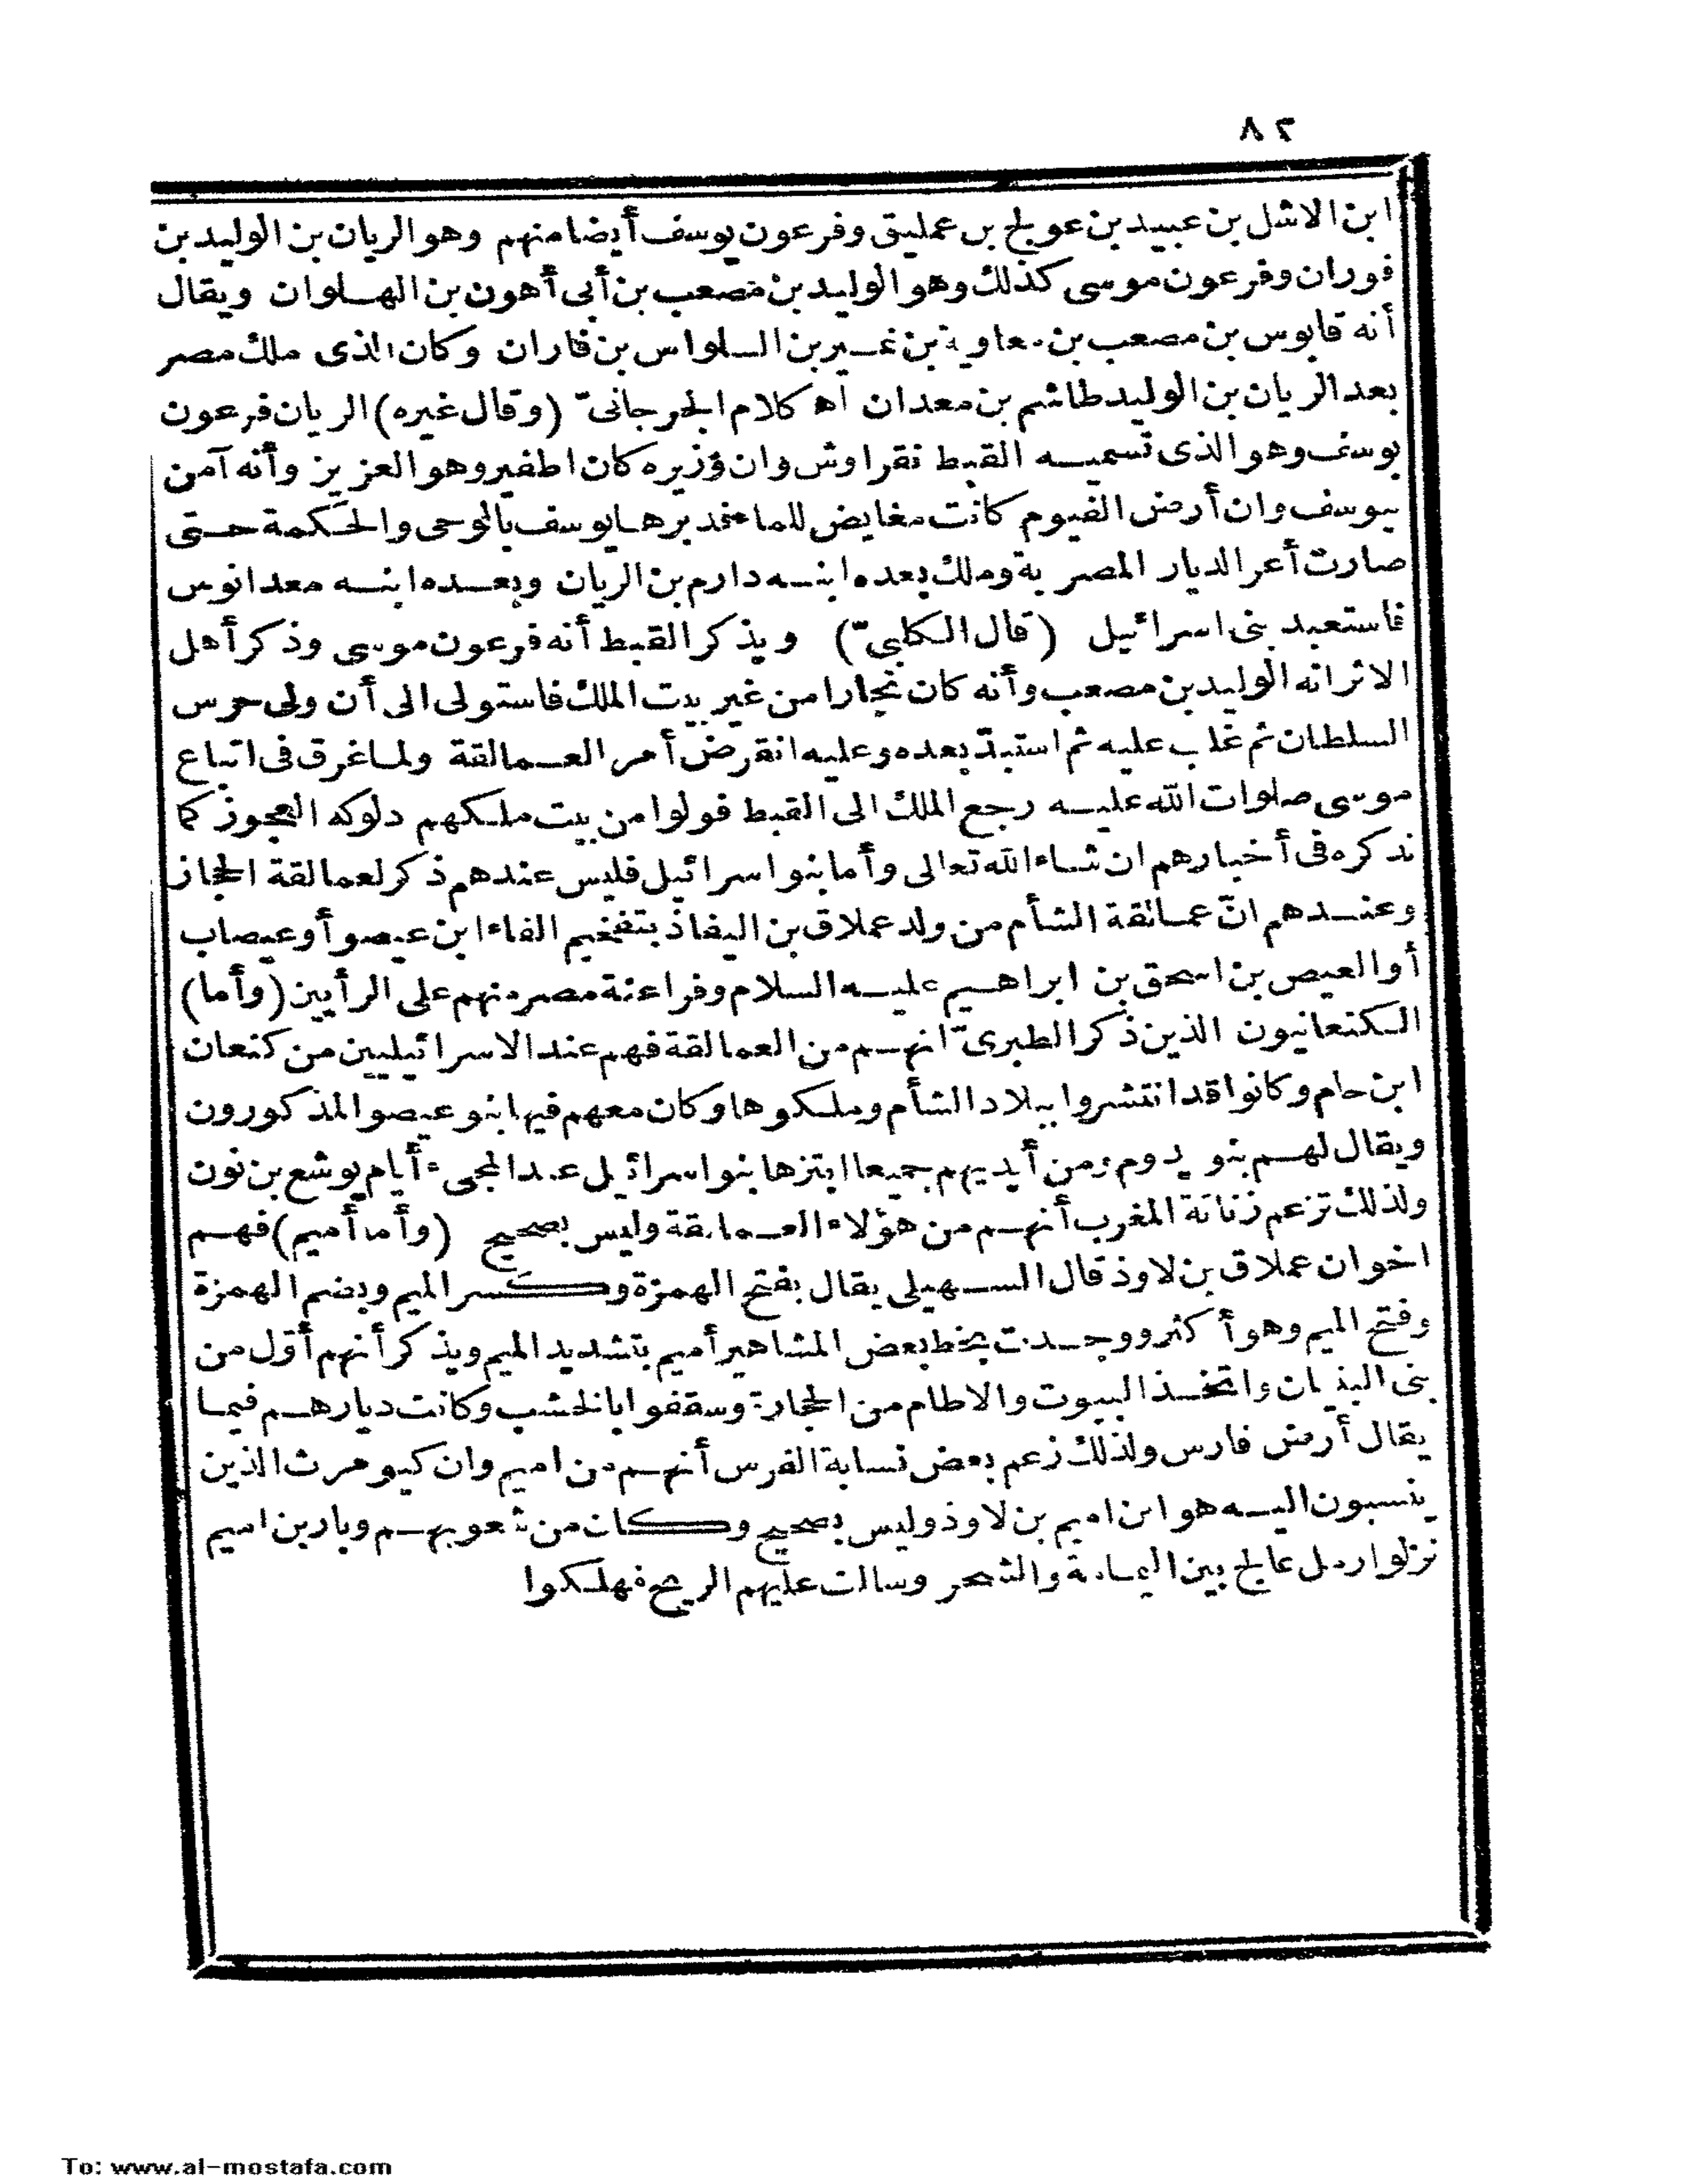 ٢٨
ابن الاشل بن عبيد بن عولج بن عمليق وفرعون يوسف أيضا منهم وهو الريان بن الوليد بن
فوران وفرعون موسى كذلك وهو الوليد بن مصعب بن أبى أهون بن الهلوان ويقال
أنه قابوس بن مصعب بن معاوية بن نمير بن السلواس بن فاران وكان الذى ملك مصر
بعد الريان بن الوليد طاشم بن معدان اه كلام الجرجانىّ (وقال غيره) الريان فرعون
يوسف وهو الذى تسميه القبط نقراوش وان وزيره كان اطفير وهو العزيز وأنه آمن
بيوسف وان أرض الفيوم كانت مغايض للماء فدبرها يوسف بالوحى والحكمة حتى
صارت أعز الديار المصرية وملك بعده ابنه دارم بن الريان وبعده ابنه معدانوس
فاستعبد بنى اسرائيل (قال الكلبىّ) ويذكر القبط أنه فرعون موسى وذكر أهل
الاثر انه الوليد بن مصعب وأنه كان نجارا من غير بيت الملك فاستولى الى أن ولى حرس
السلطان ثم غلب عليه ثم استبدّ بعده وعليه انقرض أمر العمالقة ولما غرق فى اتباع
موسى صلوات الله عليه رجع الملك الى القبط فولوا من بيت ملكهم دلوكه العجوز كما
نذكره فى أخبارهم ان شاء الله تعالى وأما بنو اسرائيل فليس عندهم ذكر لعمالقة الحجاز
وعندهم انّ عمالقة الشأم من ولد عملاق بن اليفاذ بتفخيم الفاء ابن عيصو أو عيصاب
أو العيص بن اسحق بن ابراهيم عليه السلام وفراعنة مصر منهم على الرأيين (وأما)
الكنعانيون الذين ذكر الطبرىّ انهم من العمالقة فهم عند الاسرائيليين من كنعان
ابن حام وكانوا قد انتشروا ببلاد الشأم وملكوها وكان معهم فيها بنو عيصو المذكورون
ويقال لهم بنو يدوم ومن أيديهم جميعا ابتزها بنو اسرائيل عند المجىء أيام يوشع بن نون
ولذلك تزعم زناتة المغرب أنهم من هؤلاء العمالقة وليس بصحيح (وأما أميم) فهم
اخوان عملاق بن لاوذ قال السهيلى يقال بفتح الهمزة وكسر الميم وبضم الهمزة
وفتح الميم وهو أكثر ووجدت بخط بعض المشاهير أميم بتشديد الميم ويذكر أنهم أوّل من
بنى البنيان واتخذ البيوت والاطام من الحجارة وسقفوا بالخشب وكانت ديارهم فيما
يقال أرض فارس ولذلك زعم بعض نسابة الفرس أنهم من اميم وان كيومرث الذين
ينسبون اليه هو ابن اميم بن لاوذ وليس بصحيح وكان من شعوبهم وبار بن اميم
نزلوا رمل عالج بين اليمامة والشحر وسالت عليهم الريح فهلكوا
To: www.al-mostafa.com